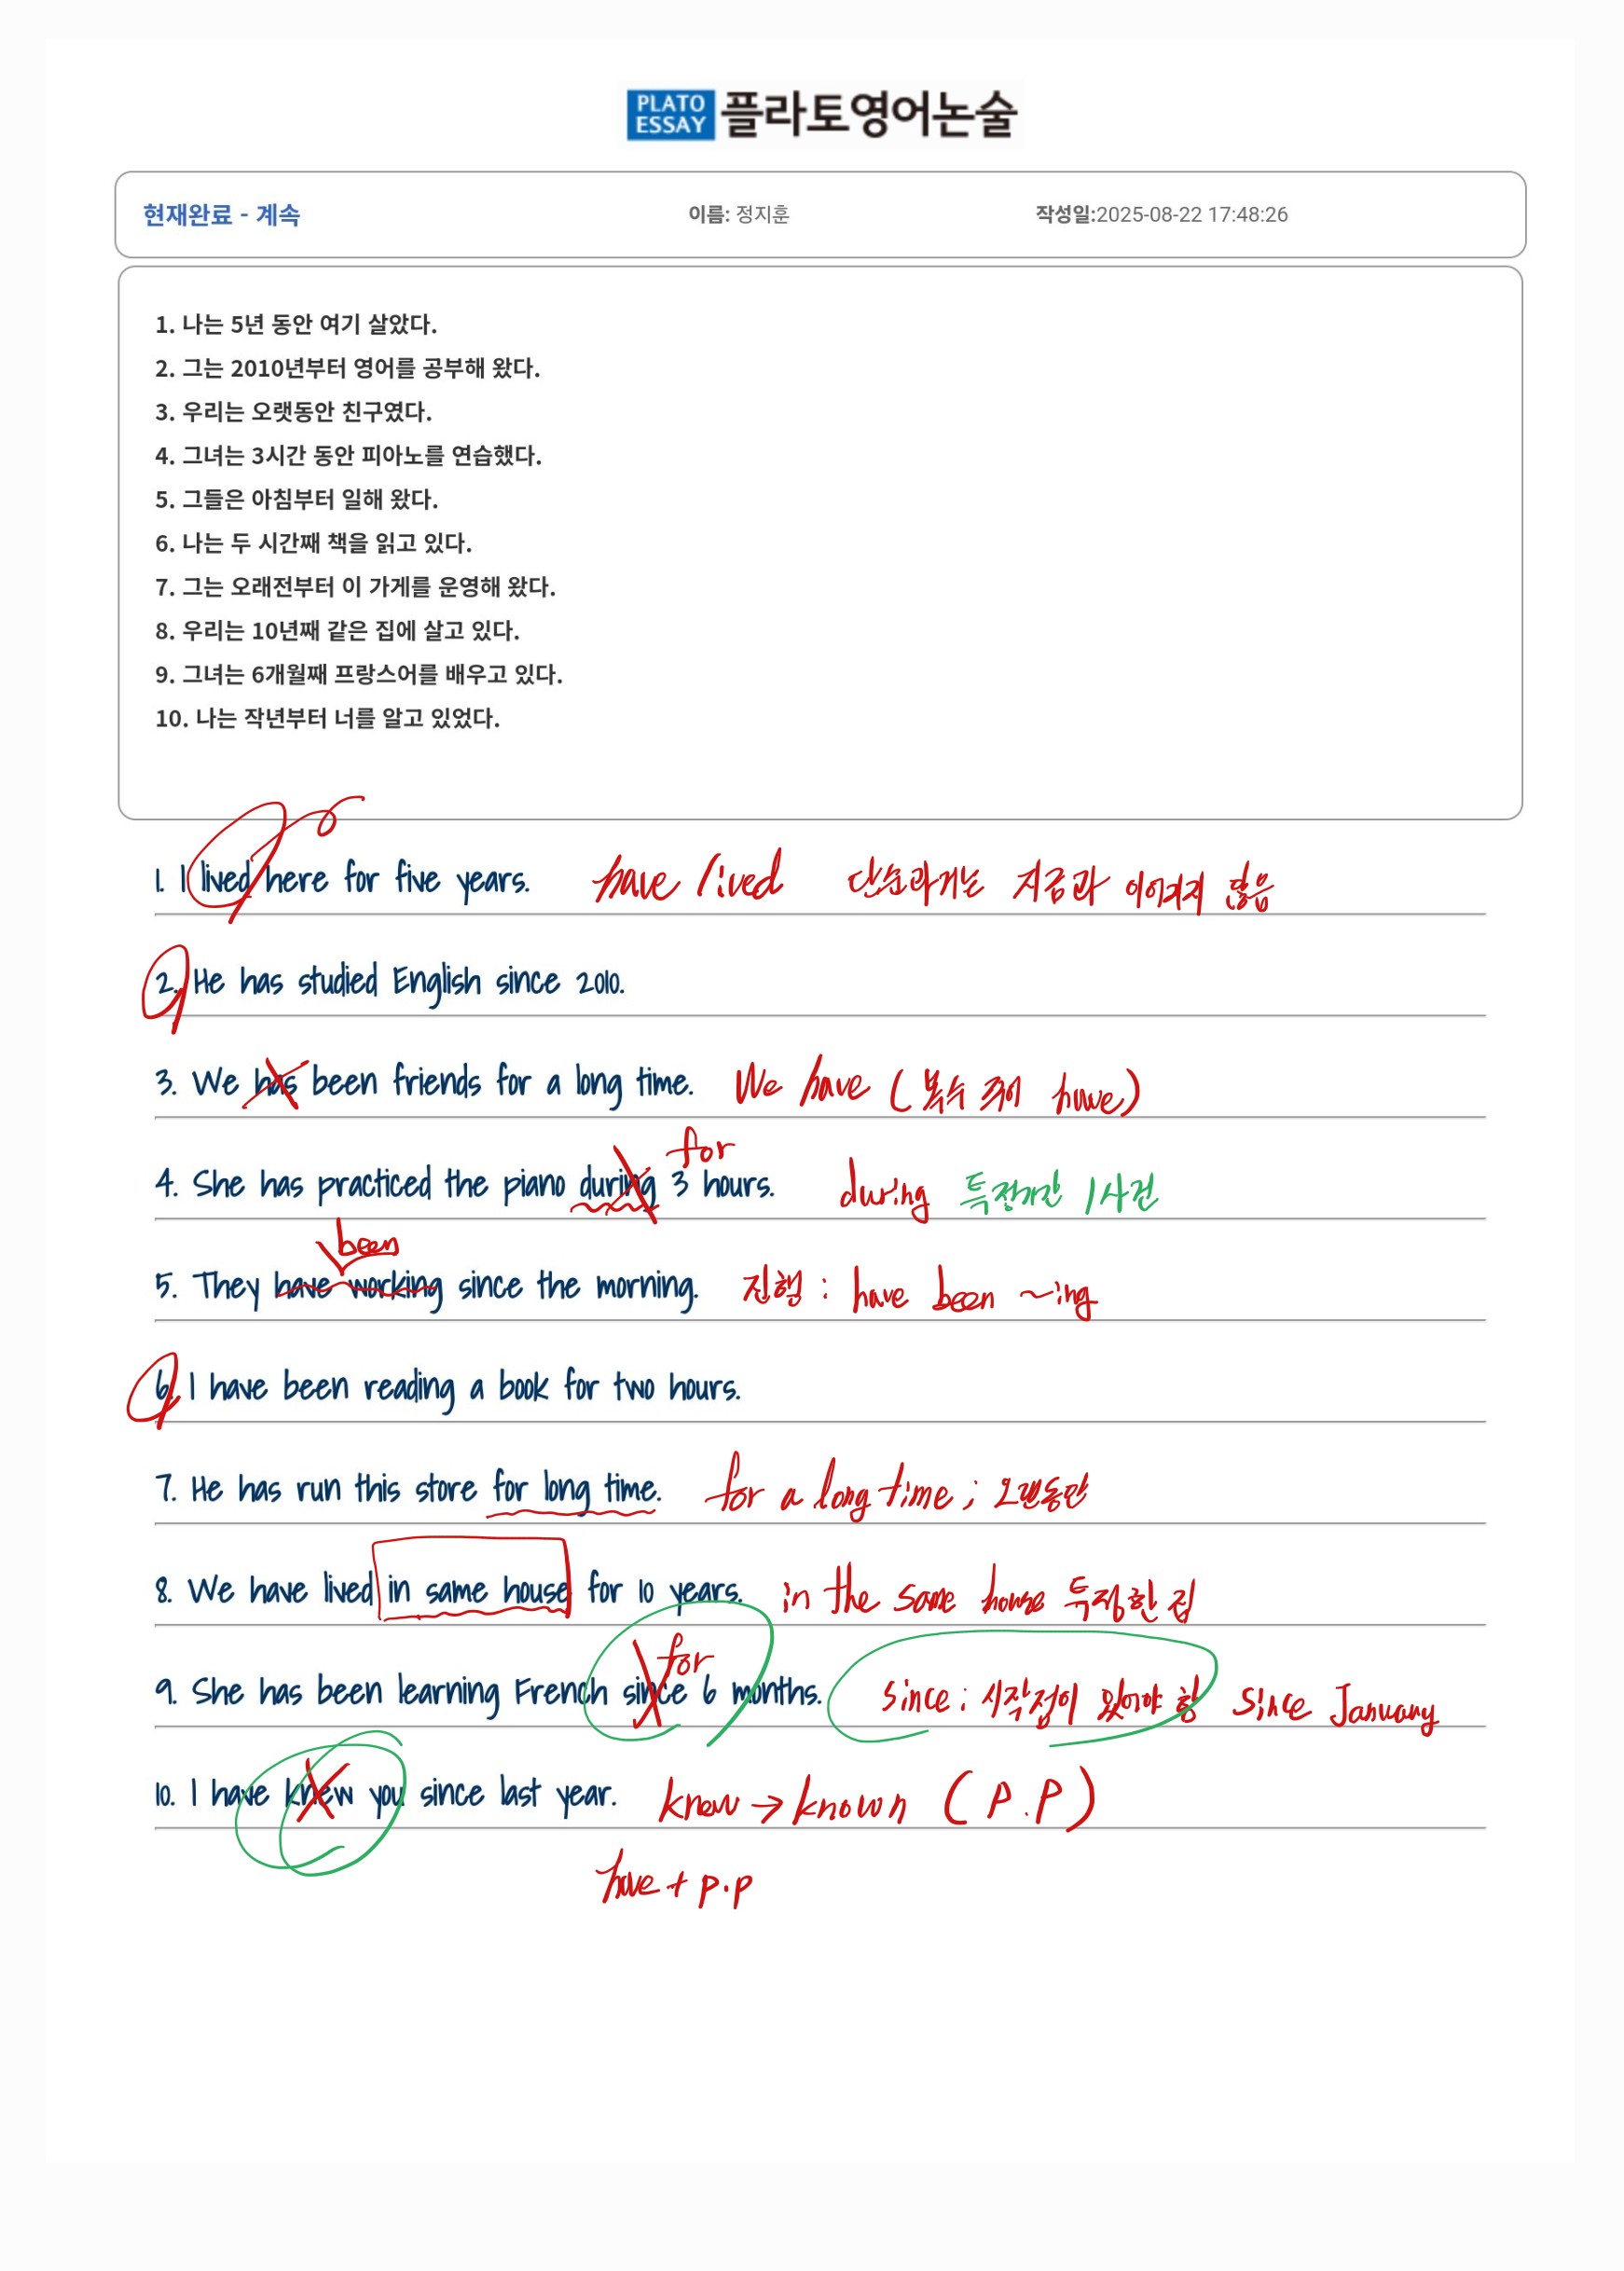 PLATO
ESSAY 플라토영어논술
현재완료 - 계속 이름: 정지훈 작성일:2025-08-22 17:48:26
1. 나는 5년 동안 여기 살았다.
2. 그는 2010년부터 영어를 공부해 왔다.
3. 우리는 오랫동안 친구였다.
4. 그녀는 3시간 동안 피아노를 연습했다.
5. 그들은 아침부터 일해 왔다.
6. 나는 두 시간째 책을 읽고 있다.
7. 그는 오래전부터 이 가게를 운영해 왔다.
8. 우리는 10년째 같은 집에 살고 있다.
9. 그녀는 6개월째 프랑스어를 배우고 있다.
10. 나는 작년부터 너를 알고 있었다.
1. I lived here for five years. have lived 단순과거는 지금과 이어지지 않음
2. He has studied English since 2010.
3. We has been friends for a long time. We have (복수 주어 have)
for
4. She has practiced the piano during 3 hours. during 특정기간 / 사건
been
5. They have working since the morning. 진행 : have been ~ing
6. I have been reading a book for two hours.
7. He has run this store for long time. for a long time ; 오랫동안
8. We have lived in same house for 10 years. in the same house 특정한 집
for
9. She has been learning French since 6 months. since ; 시작점이 있어야 함 since January
10. I have knew you since last year. knew → known (P.P)
have + p.p